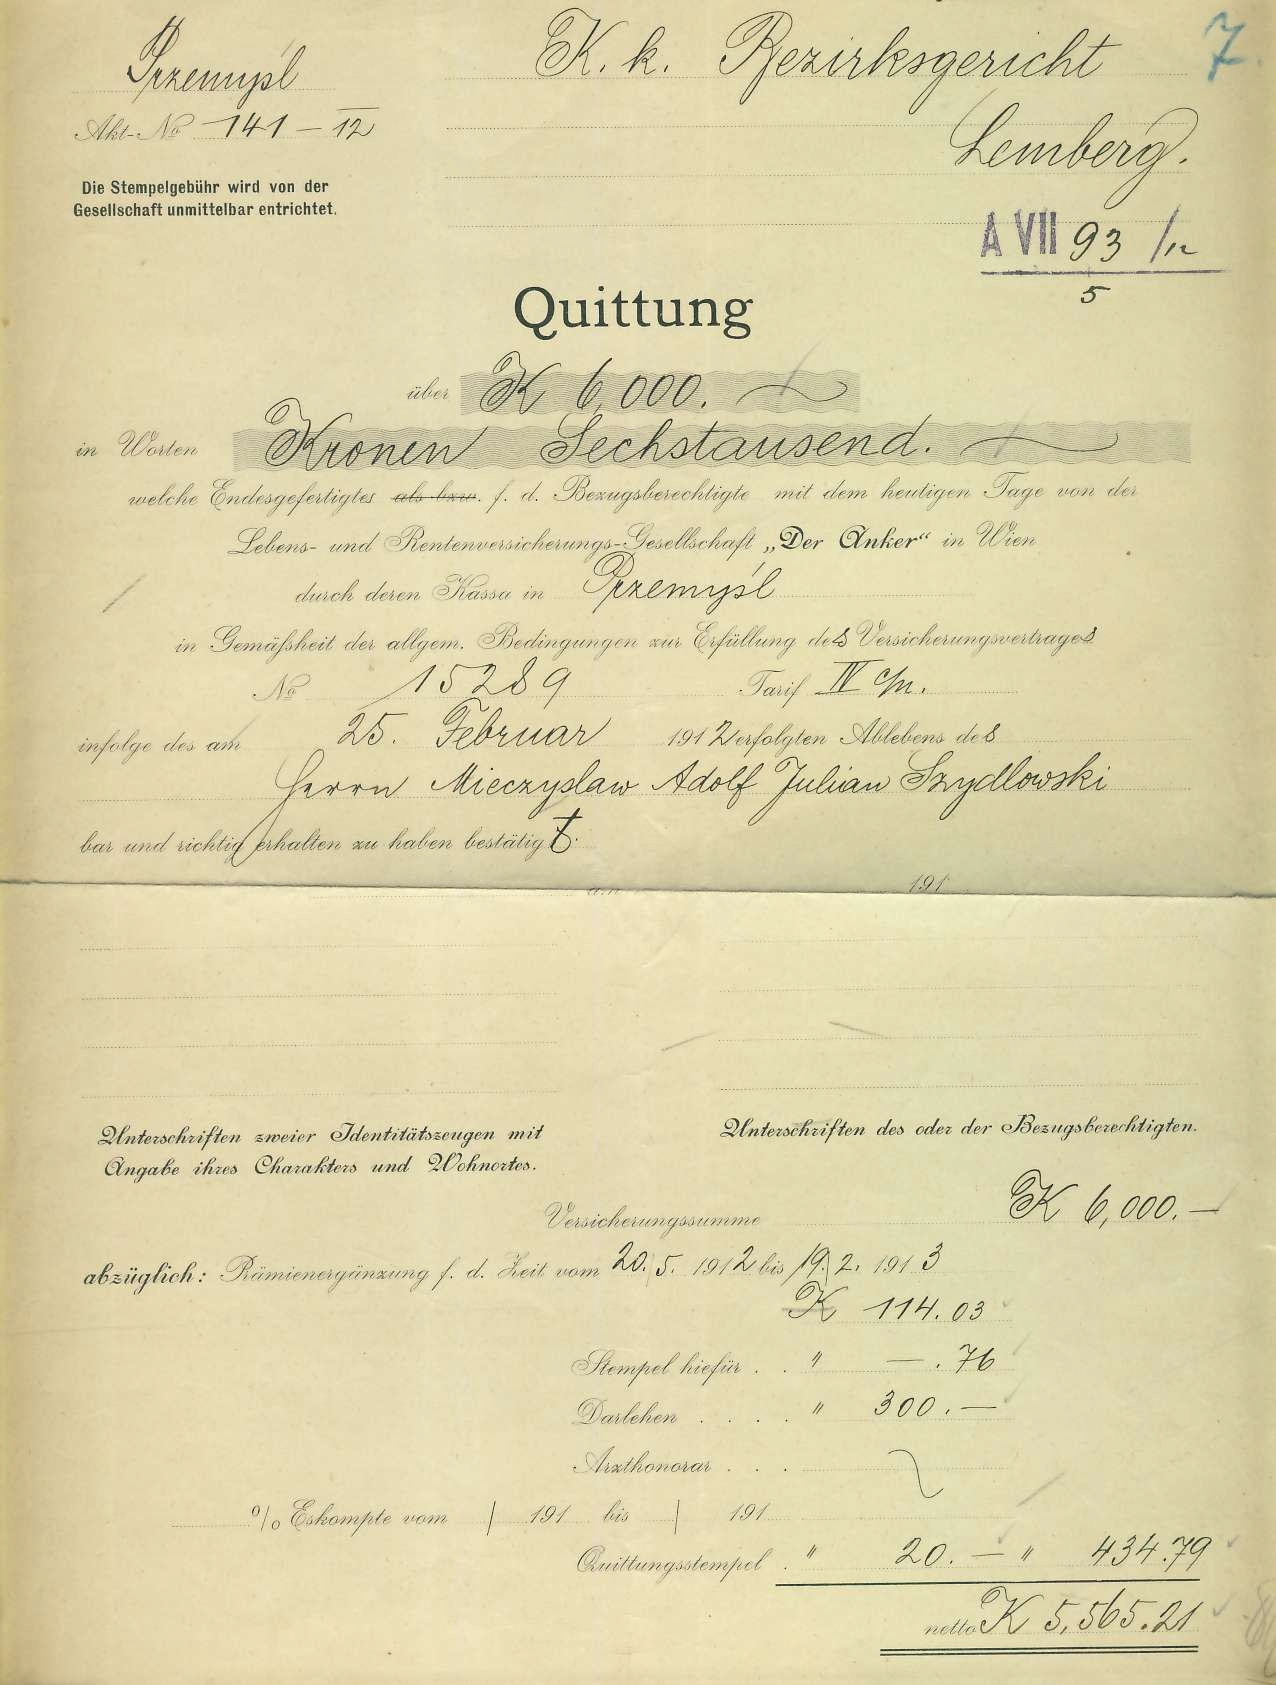 Przemyśl
K. k. Bezirksgericht
7
Akt-No 141-12
Lemberg.
Die Stempelgebühr wird von der
Gesellschaft unmittelbar entrichtet.
A VII 93/12
5
Quittung
über K 6,000.
in Worten Kronen Sechstausend.
welche Endesgefertigtes als bzw. f. d. Bezugsberechtigte mit dem heutigen Tage von der
Lebens- und Rentenversicherungs-Gesellschaft „Der Anker“ in Wien
durch deren Kassa in Przemyśl
in Gemäßheit der allgem. Bedingungen zur Erfüllung des Versicherungsvertrages
No 15289 Tarif IV c/m.
infolge des am 25. Februar 1912 erfolgten Ablebens des
Herrn Mieczyslaw Adolf Julian Szydlowski
bar und richtig erhalten zu haben bestätigt.
am 191
Unterschriften zweier Identitätszeugen mit
Angabe ihres Charakters und Wohnortes.
Unterschriften des oder der Bezugsberechtigten.
Versicherungssumme K 6,000.—
abzüglich: Prämienergänzung f. d. Zeit vom 20./5. 1912 bis 19./2. 1913
K 114.03
Stempel hiefür . . " —.76
Darlehen . . . . " 300.—
Arzthonorar . . .
% Eskompte vom / 191 bis / 191
Quittungsstempel . " 20.— " 434.79
netto K 5,565.21